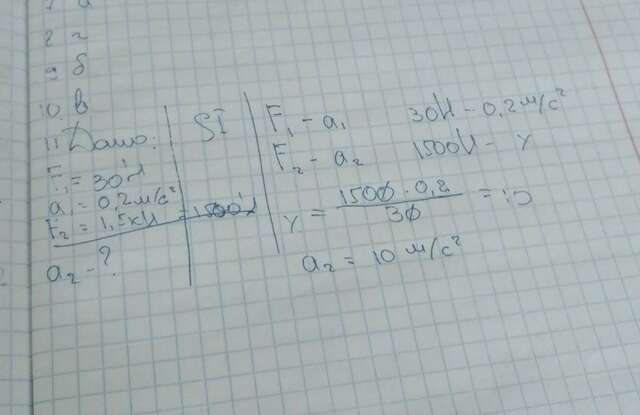 8 г
9 б
10 в
11 Дано:
F₁ = 30 Н
a₁ = 0,2 м/с²
F₂ = 1,5 кН
a₂ - ?
SI
1500 Н
F₁ - a₁ 30Н - 0,2 м/с²
F₂ - a₂ 1500Н - Y
Y = 1500 · 0,2 / 30 = 10
a₂ = 10 м/с²